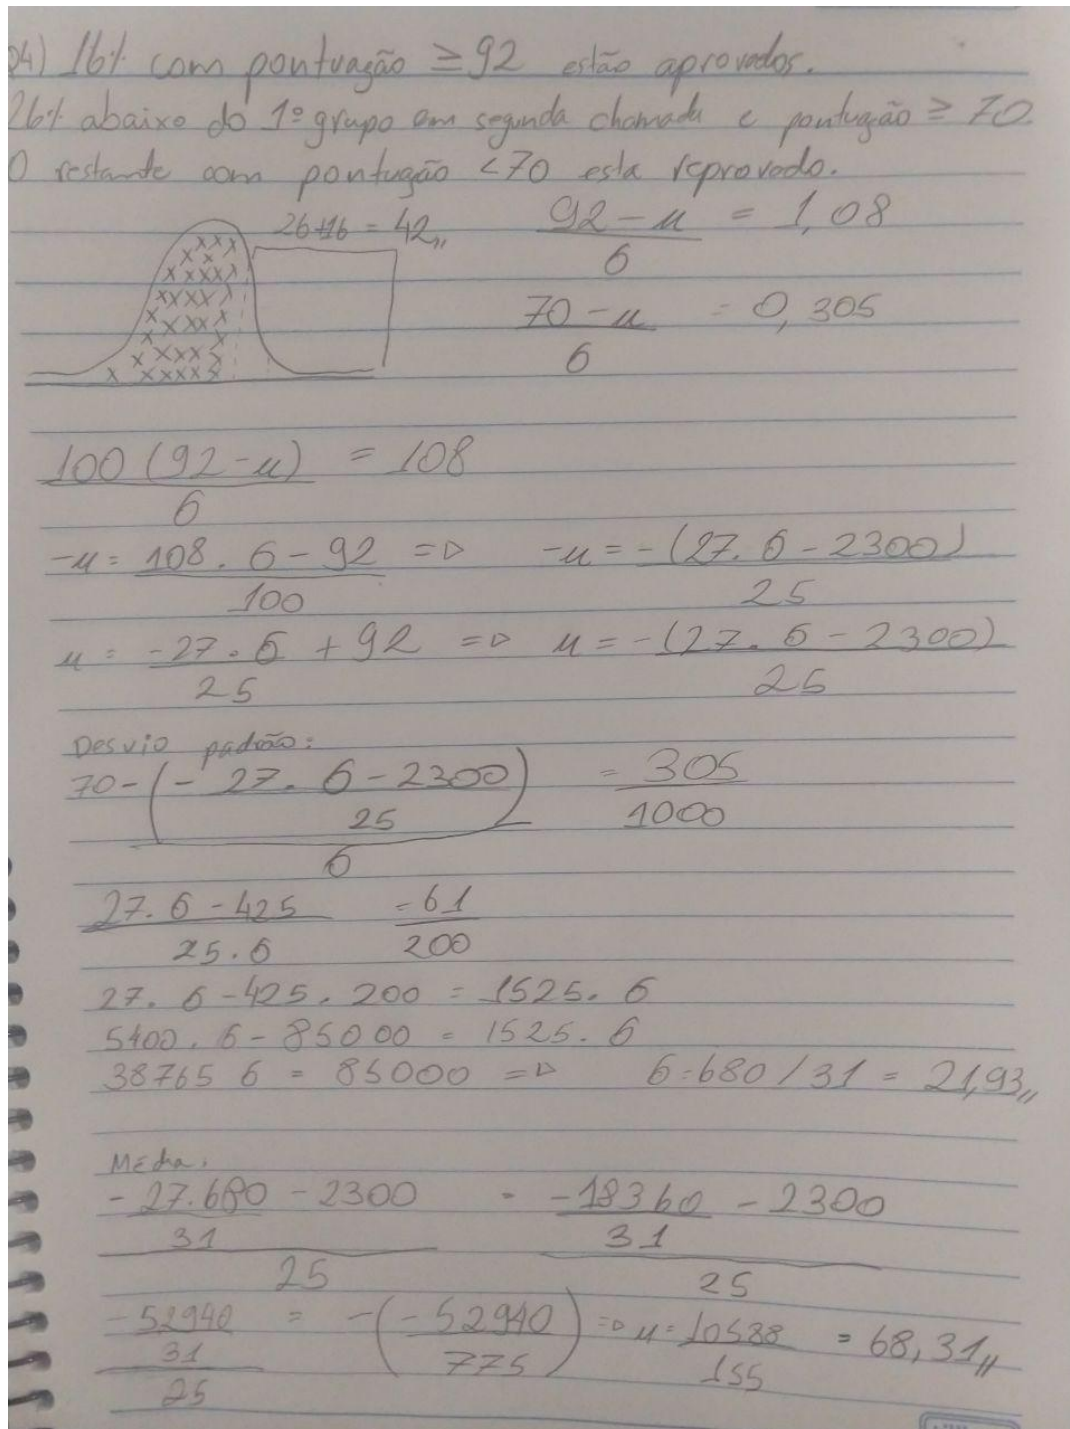 04) 16% com pontuação ≥ 92 estão aprovados.
26% abaixo do 1º grupo em segunda chamada e pontuação ≥ 70.
O restante com pontução < 70 esta reprovado.
26+16 = 42,,
92 - u / 6 = 1,08
70 - u / 6 = 0,305
100 (92 - u) / 6 = 108
-u = 108 . 6 - 92 / 100 => -u = -(27. 6 - 2300) / 25
u = -27 . 6 / 25 + 92 => u = -(27. 6 - 2300) / 25
Desvio padrão:
70 - (- 27. 6 - 2300 / 25) / 6 = 305 / 1000
27. 6 - 425 / 25. 6 = 61 / 200
27. 6 - 425. 200 = 1525. 6
5400. 6 - 85000 = 1525. 6
38765 6 = 85000 => 6 = 680 / 31 = 21,93,,
Média.
- 27.680 / 31 - 2300 / 25 = -18360 / 31 - 2300 / 25
-52940 / 31 / 25 = -(-52940 / 775) => u = 10588 / 155 = 68,31,,